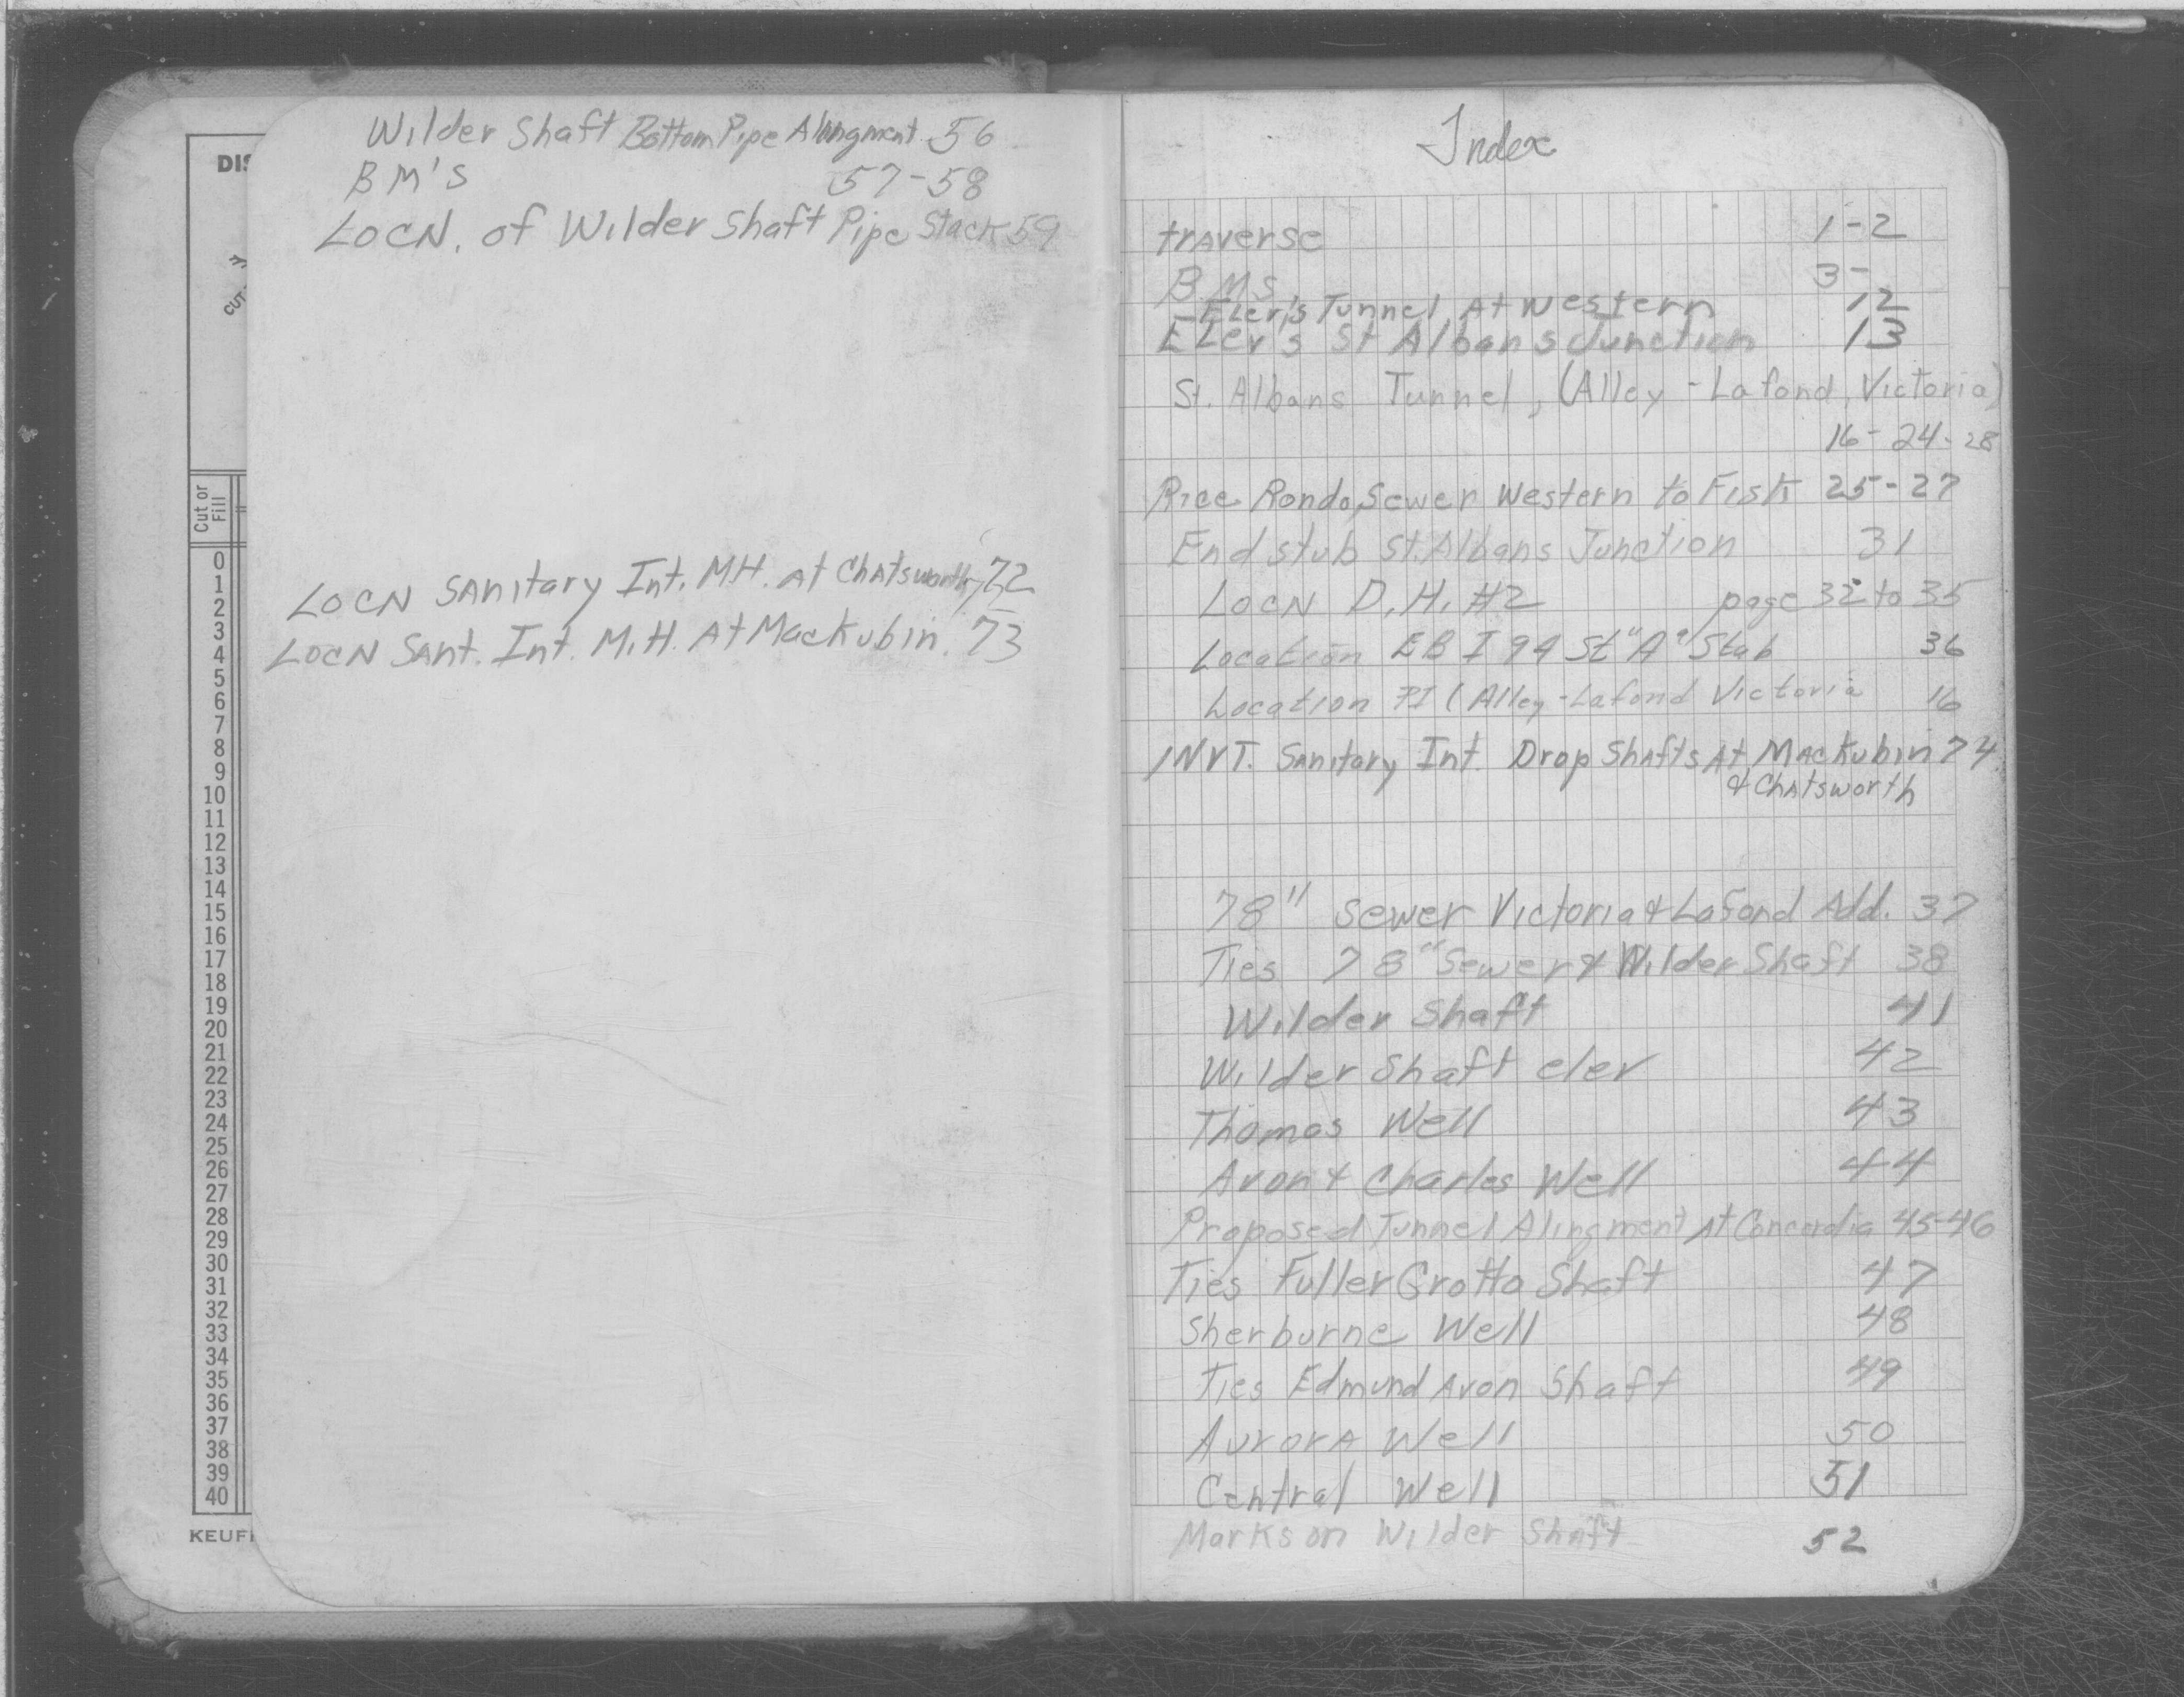 Wilder Shaft Bottom Pipe Alingment 56
BM's 57-58
LOCN. of Wilder Shaft Pipe Stack 59
LOCN Sanitary Int. M.H. At Chatsworth 72
LOCN Sant. Int. M.H. At Mackubin. 73
DIS
Cut or
Fill
0
1
2
3
4
5
6
7
8
9
10
11
12
13
14
15
16
17
18
19
20
21
22
23
24
25
26
27
28
29
30
31
32
33
34
35
36
37
38
39
40
KEUFF
Index
traverse 1-2
B.M.S 3-
Elev's Tunnel At Western 12
Elev's St Albans Junction 13
St. Albans Tunnel, (Alley - Lafond, Victoria)
16-24-28
Rice Rondo Sewer Western to Fisk 25-27
End stub St. Albans Junction 31
LOCN D.H. #2 page 32 to 35
Location EB I 94 St "A" Stab 36
Location PI (Alley - Lafond Victoria 16
INVT. Sanitary Int. Drop Shafts At Mackubin 74
& Chatsworth
78" Sewer Victoria & Lafond Add. 37
Ties 78" Sewer & Wilder Shaft 38
Wilder Shaft 41
Wilder Shaft elev 42
Thomas Well 43
Avon & Charles Well 44
Proposed Tunnel Alingment At Concordia 45-46
Ties Fuller Grotto Shaft 47
Sherburne Well 48
Ties Edmund Avon Shaft 49
Aurora Well 50
Central Well 51
Marks on Wilder Shaft 52